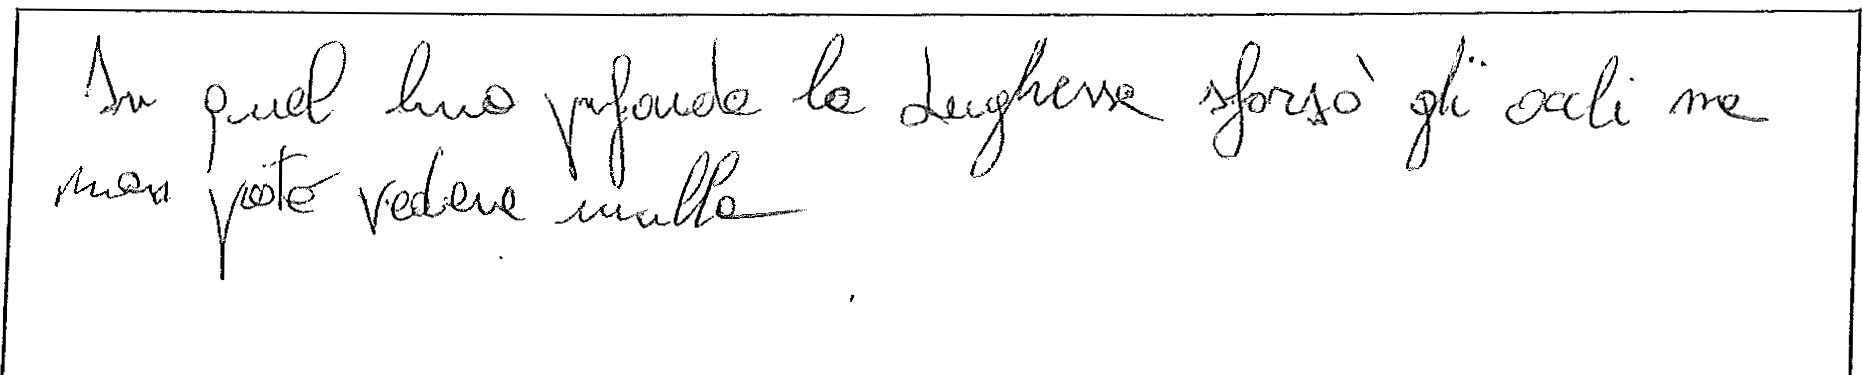 In quel buio profondo la dughessa sforzò gli occhi ma
non potè vedere nulla